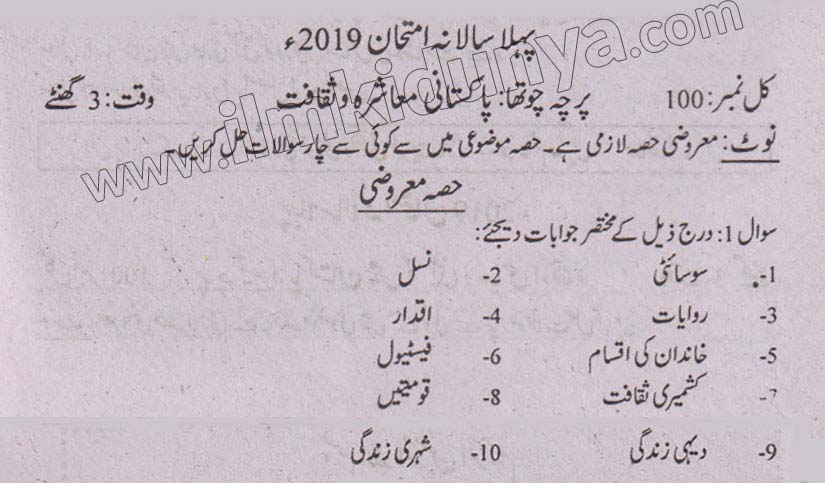 پہلا سالانہ امتحان 2019ء
کل نمبر: 100 پرچہ چوتھا: پاکستانی معاشرہ و ثقافت وقت: 3 گھنٹے
نوٹ: معروضی حصہ لازمی ہے۔ حصہ موضوعی میں سے کوئی سے چار سوالات حل کریں۔
حصہ معروضی
سوال 1: درج ذیل کے مختصر جوابات دیجئے:
1- سوسائٹی 2- نسل
3- روایات 4- اقدار
5- خاندان کی اقسام 6- فیسٹیول
7- کشمیری ثقافت 8- قومیتیں
9- دیہی زندگی 10- شہری زندگی
www.ilmkidunya.com